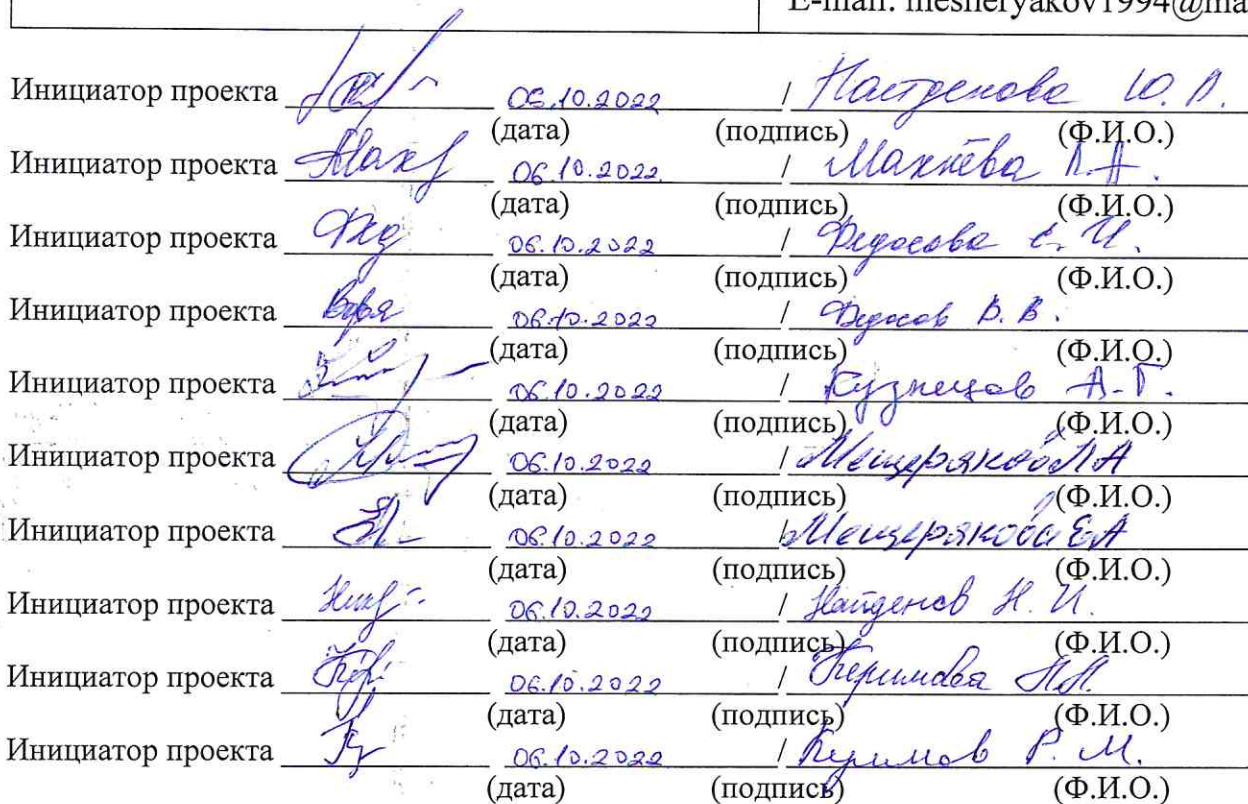 E-mail: mesheryakov1994@ma
Инициатор проекта 06.10.2022 / Ю.
(дата) (подпись) (Ф.И.О.)
Инициатор проекта 06.10.2022 / Махнёва Л.А.
(дата) (подпись) (Ф.И.О.)
Инициатор проекта 06.10.2022 / Федосова Е. И.
(дата) (подпись) (Ф.И.О.)
Инициатор проекта 06.10.2022 / Федосов В. В.
(дата) (подпись) (Ф.И.О.)
Инициатор проекта 06.10.2022 / Кузнецов А.Г.
(дата) (подпись) (Ф.И.О.)
Инициатор проекта 06.10.2022 / Мещеряков А
(дата) (подпись) (Ф.И.О.)
Инициатор проекта 06.10.2022 / Мещерякова Е.А
(дата) (подпись) (Ф.И.О.)
Инициатор проекта 06.10.2022 / Найденов Н. И.
(дата) (подпись) (Ф.И.О.)
Инициатор проекта 06.10.2022 / Керимова
(дата) (подпись) (Ф.И.О.)
Инициатор проекта 06.10.2022 / Керимов Р. М.
(дата) (подпись) (Ф.И.О.)